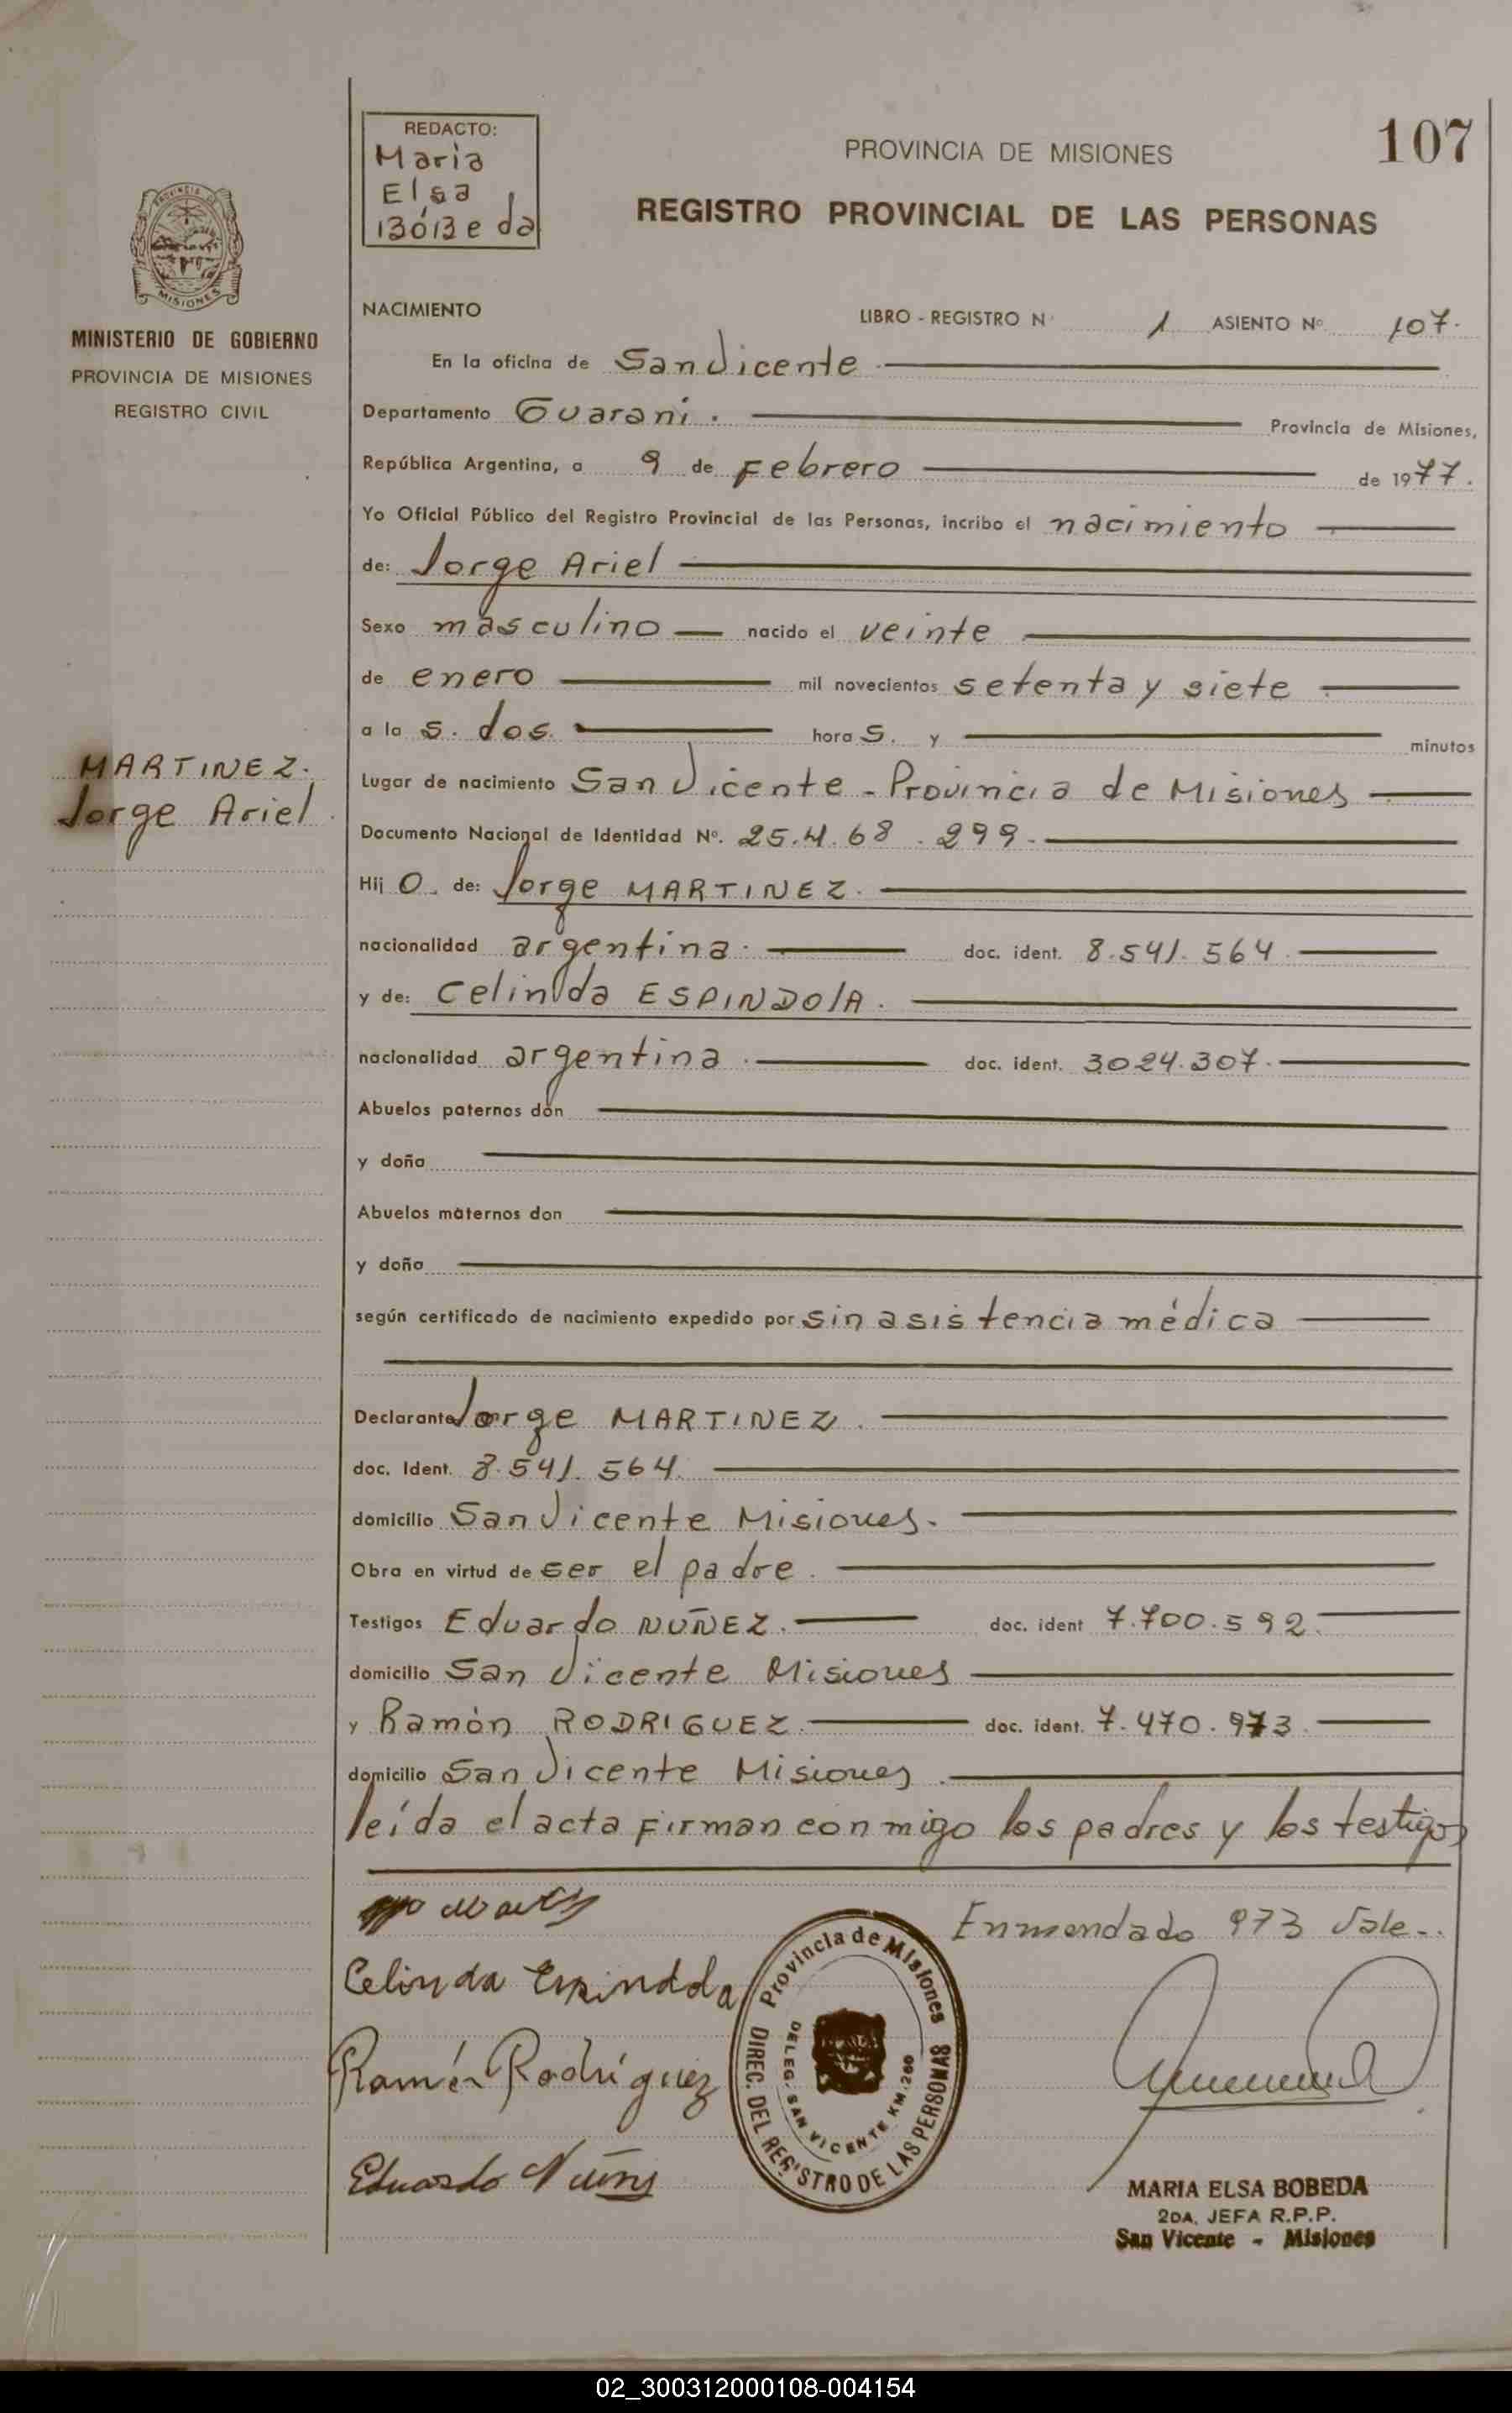 REDACTO:
Maria
Elsa
Bóbeda
PROVINCIA DE MISIONES
107
REGISTRO PROVINCIAL DE LAS PERSONAS
MISIONES
MINISTERIO DE GOBIERNO
PROVINCIA DE MISIONES
REGISTRO CIVIL
MARTINEZ.
Jorge Ariel
NACIMIENTO LIBRO - REGISTRO N° 1 ASIENTO N° 107.
En la oficina de San Vicente
Departamento Guarani. Provincia de Misiones,
República Argentina, a 9 de Febrero de 1977.
Yo Oficial Público del Registro Provincial de las Personas, incribo el nacimiento
de: Jorge Ariel
Sexo masculino nacido el veinte
de enero mil novecientos setenta y siete
a la s. dos. hora s. y minutos
Lugar de nacimiento San Vicente - Provincia de Misiones
Documento Nacional de Identidad N°. 25.468.299.
Hij o. de: Jorge MARTINEZ.
nacionalidad argentina. doc. ident. 8.541.564.
y de: Celinda ESPINDOlA.
nacionalidad argentina. doc. ident. 3024.307.
Abuelos paternos don
y doña
Abuelos maternos don
y doña
según certificado de nacimiento expedido por sin asistencia médica
Declarante Jorge MARTINEZ.
doc. Ident. 8.541.564.
domicilio San Vicente Misiones.
Obra en virtud de ser el padre.
Testigos Eduardo NUÑEZ. doc. ident 7.700.592.
domicilio San Vicente Misiones
y Ramón RODRIGUEZ. doc. ident. 7.470.973.
domicilio San Vicente Misiones.
leída el acta Firman conmigo los padres y los testigos
Enmendado 973 Vale.
Celinda Espindola
Ramón Rodríguez
Eduardo Nuñez
Provincia de Misiones
DIREC. DEL REGISTRO DE LAS PERSONAS
DELEG. SAN VICENTE KM. 260
MARIA ELSA BOBEDA
2DA. JEFA R.P.P.
San Vicente - Misiones
02_300312000108-004154